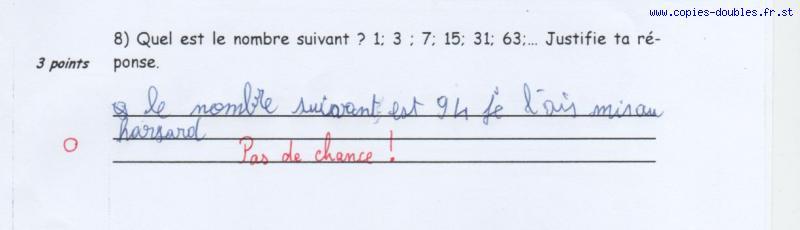 www.copies-doubles.fr.st
8) Quel est le nombre suivant ? 1; 3 ; 7; 15; 31; 63;... Justifie ta ré-
3 points ponse.
le nombre suivant est 94 je l'ais misau
harsard
0 Pas de chance !